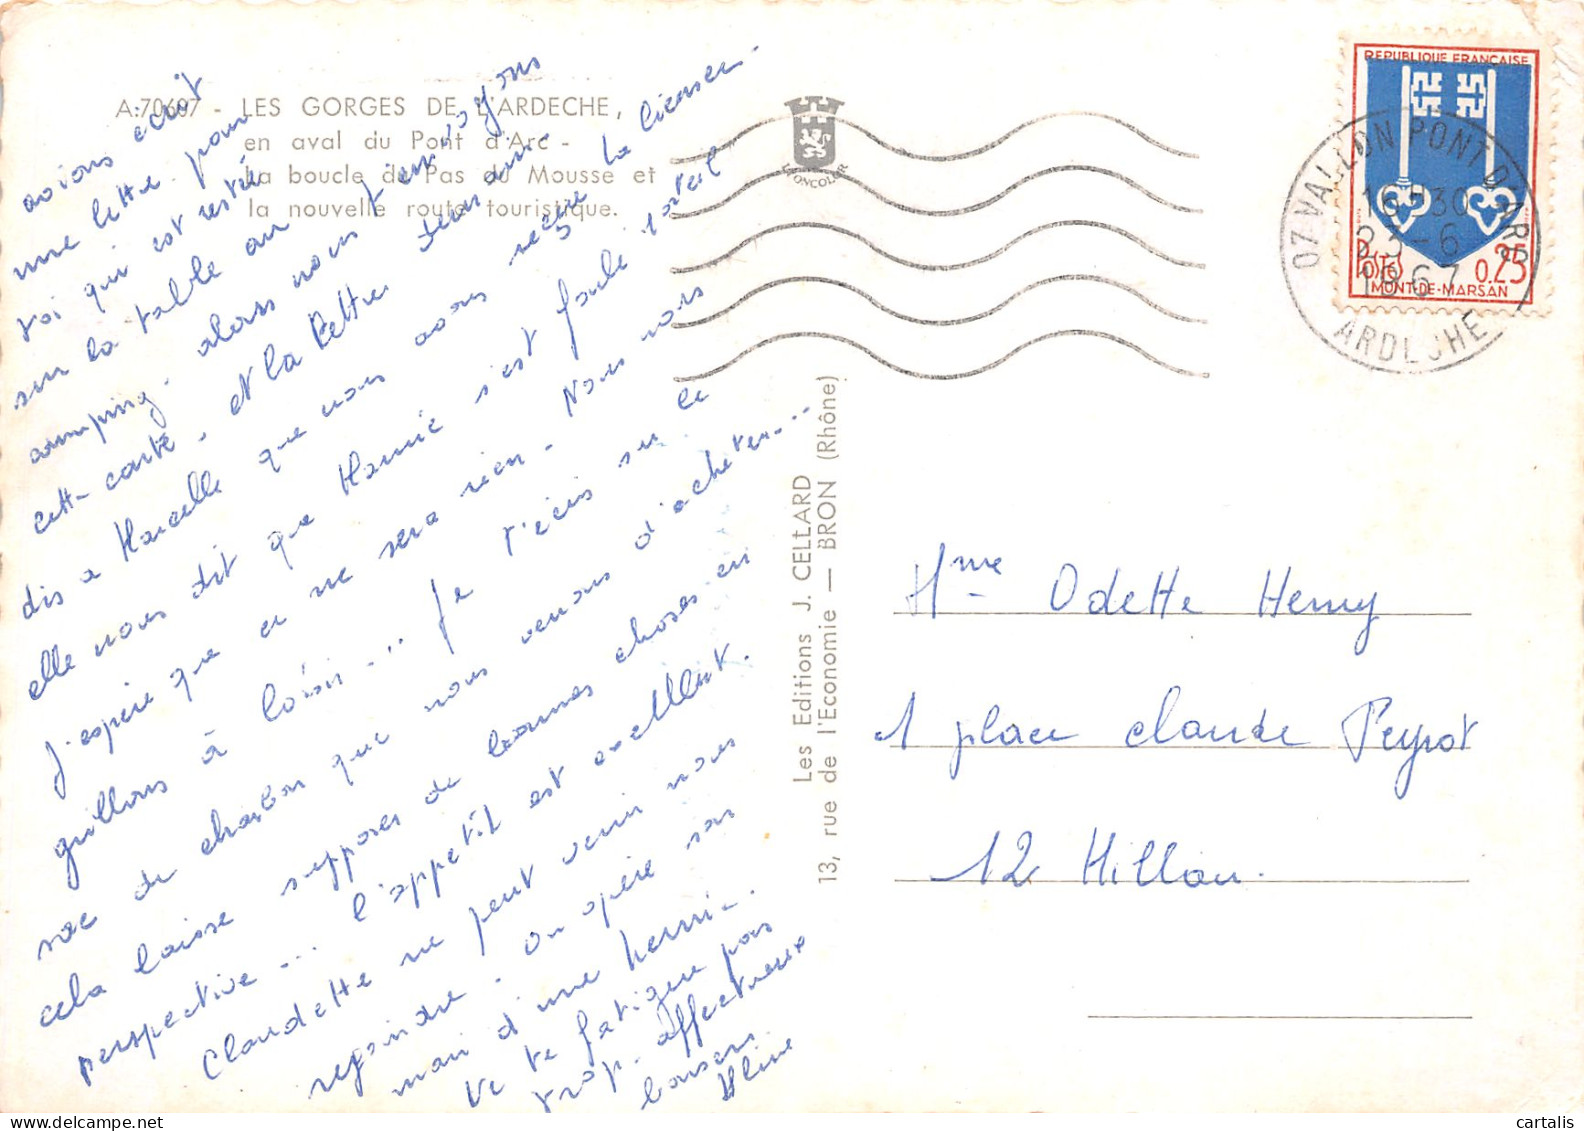 A.70607 - LES GORGES DE L'ARDECHE,
en aval du Pont d'Arc -
la boucle du Pas du Mousse et
la nouvelle route touristique.
avions écrit
une lettre pour
toi qui est restée
sur la table au
camping. alors nous t'envoyons
cette carte, et la lettre demain.
dis a Marcelle que nous avons reçue la licence.
elle nous dit que Mamie s'est foulé l'orteil
j'espère que ce ne sera rien. Nous nous
grillons à loisir... Je t'écris sur le
sac de charbon que nous venons d'acheter...
cela laisse supposer de bonnes choses en
perspective... l'appetit est excellent.
Claudette ne peut venir nous
rejoindre. On opère son
mari d'une hernie.
Ne te fatigue pas
trop. affectueux
baisers
Aline
EONCOLOR
Les Editions J. CELLARD
13, rue de l'Economie — BRON (Rhône)
REPUBLIQUE FRANÇAISE
POSTES 0.25
MONT-DE-MARSAN
07 VALLON PONT D'ARC
16H30
23-6
1967
ARDECHE
Mme Odette Henry
1 place claude Peyrot
12 Millau.
cartalis